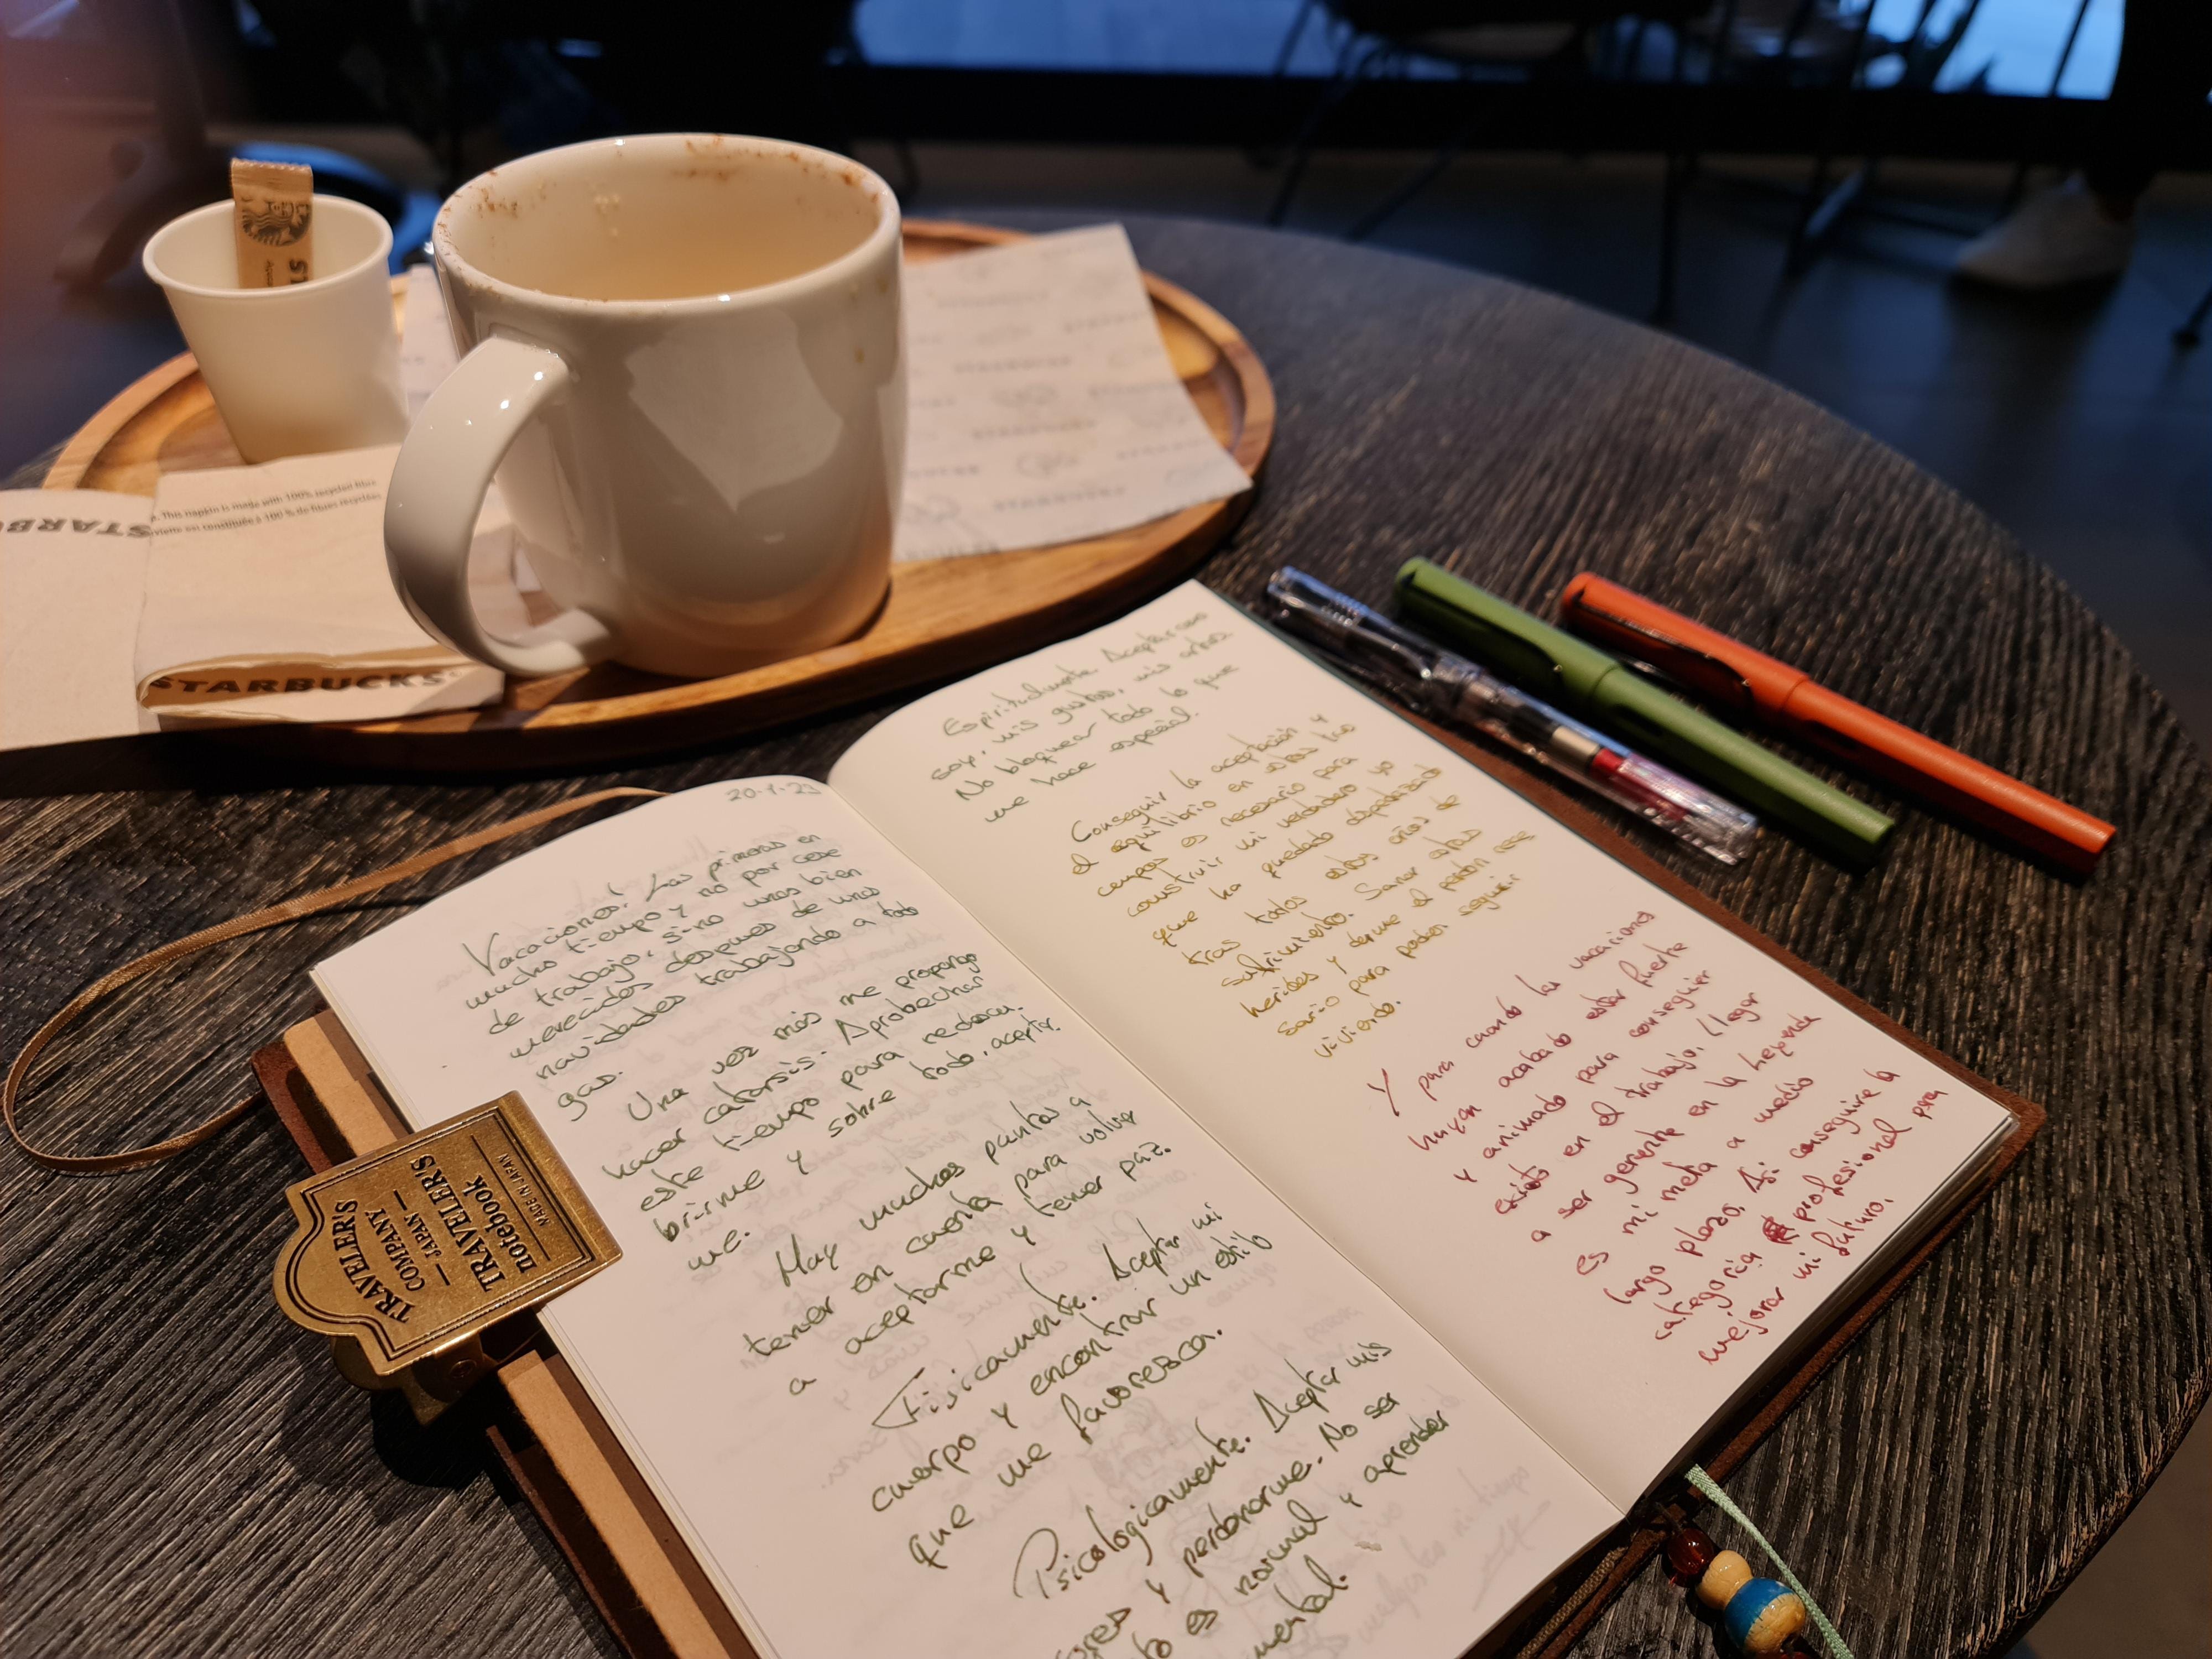 STARBUCKS
This napkin is made with 100% recycled fibre
100 % de fibres recyclées
STARBUCKS
TRAVELER'S
COMPANY
— JAPAN —
TRAVELER'S
notebook
MADE IN JAPAN
20.1.23
Vacaciones! Las primeras en
mucho tiempo y no por cese
de trabajo, sino unas bien
merecidas despues de unas
navidades trabajando a todo
gas.
Una vez más me propongo
hacer catarsis. Aprobechar
este tiempo para redescu-
brirme y sobre todo, aceptar-
me.
Hay muchos puntos a
tener en cuenta para volver
a aceptarme y tener paz.
Fisicamente. Aceptar mi
cuerpo y encontrar un estilo
que me favoresca.
Psicologicamente. Aceptar mis
y perdonarme. No ser
es normal y aprender
Espiritualmente. Aceptar
soy, mis gustos, mis
No bloquear todo lo que
me hace especial.
Conseguir la aceptación y
el equilibrio en estos tres
campos es necesario para
construir mi verdadero yo
que ha quedado
tras todos estos años de
sufrimiento. Sanar estas
heridas y darme el perdón nece
sario para poder seguir
viviendo.
Y para cuando las vacaciones
hayan acabado estar fuerte
y animado para conseguir
existo en el trabajo. Llegar
a ser gerente en la
es mi meta a medio
largo plazo. Asi conseguire la
categoria profesional para
mejorar mi futuro.